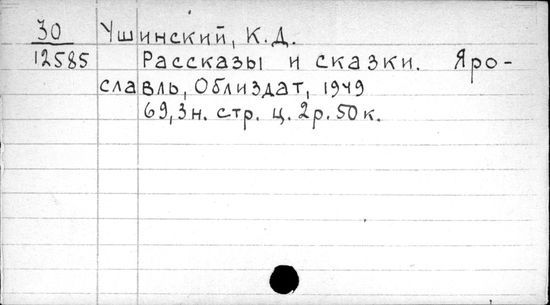 30 Ушинский, К.Д.
12585 Рассказы и сказки. Яро-
славль, Облиздат, 1949
69,3н. стр. ц. 2р. 50к.